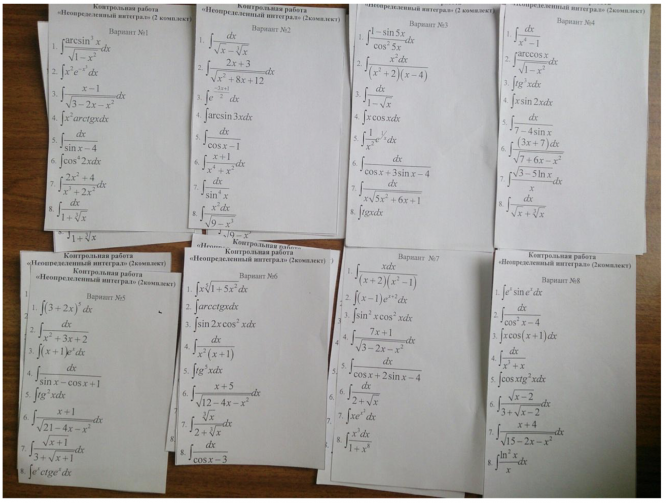 Контрольная работа
«Неопределенный интеграл» (2 комплект)
Вариант №1
1. ∫ arcsin³x / √(1 − x²) dx
2. ∫ x²e^(−x³) dx
3. ∫ (x − 1) / √(3 − 2x − x²) dx
4. ∫ x² arctgx dx
5. ∫ dx / (sin x − 4)
6. ∫ cos⁴ 2x dx
7. ∫ (2x² + 4) / (x³ + 2x²) dx
8. ∫ dx / (1 + ∛x)
1 + ∛x
Контрольная работа
«Неопределенный интеграл» (2комплект)
Вариант №2
1. ∫ dx / (√x − ∜x)
2. ∫ (2x + 3) / √(x² + 8x + 12) dx
3. ∫ e dx
4. ∫ arcsin 3x dx
5. ∫ dx / (cos x − 1)
6. ∫ (x + 1) / (x⁴ + x²) dx
7. ∫ dx / sin⁴ x
8. ∫ x²dx / √(9 − x³)
«Неопределенный интеграл» (2 комплект)
Вариант №3
1. ∫ (1 − sin 5x) / cos² 5x dx
2. ∫ x²dx / ((x² + 2)(x − 4))
3. ∫ dx / (1 − √x)
4. ∫ x cos x dx
5. ∫ (1/x²) e^(1/x) dx
6. ∫ dx / (cos x + 3 sin x − 4)
7. ∫ dx / (x√(5x² + 6x + 1))
8. ∫ tgx dx
«Неопределенный интеграл» (2 комплект)
Вариант №4
1. ∫ dx / (x⁴ − 1)
2. ∫ arccos x / √(1 − x²) dx
3. ∫ tg³x dx
4. ∫ x sin 2x dx
5. ∫ dx / (7 − 4 sin x)
6. ∫ (3x + 7)dx / √(7 + 6x − x²)
7. ∫ √(3 − 5 ln x) / x dx
8. ∫ dx / (√x + ∛x)
Контрольная работа
«Неопределенный интеграл» (2комплект)
Контрольная работа
«Неопределенный интеграл» (2комплект)
Вариант №5
1. ∫ (3 + 2x)⁵ dx
2. ∫ dx / (x² + 3x + 2)
3. ∫ (x + 1)eˣ dx
4. ∫ dx / (sin x − cos x + 1)
5. ∫ tg²x dx
6. ∫ (x + 1) / √(21 − 4x − x²) dx
7. ∫ √(x + 1) / (3 + √(x + 1)) dx
8. ∫ eˣctgeˣ dx
Контрольная работа
«Неопределенный интеграл» (2комплект)
Вариант №6
1. ∫ x∛(1 + 5x²) dx
2. ∫ arcctgx dx
3. ∫ sin 2x cos² x dx
4. ∫ dx / (x²(x + 1))
5. ∫ tg³x dx
6. ∫ (x + 5) / √(12 − 4x − x²) dx
7. ∫ ∛x / (2 + ∛x) dx
8. ∫ dx / (cos x − 3)
Вариант №7
1. ∫ xdx / ((x + 2)(x² − 1))
2. ∫ (x − 1)e^(x+3) dx
3. ∫ sin² x cos² x dx
4. ∫ (7x + 1) / √(3 − 2x − x²) dx
5. ∫ dx / (cos x + 2 sin x − 4)
6. ∫ dx / (2 + √x)
7. ∫ xe^(x²) dx
8. ∫ x³dx / (1 + x⁸)
Контрольная работа
«Неопределенный интеграл» (2комплект)
Вариант №8
1. ∫ eˣ sin eˣ dx
2. ∫ dx / (cos² x − 4)
3. ∫ x cos(x + 1) dx
4. ∫ dx / (x³ + x)
5. ∫ cos x tg²x dx
6. ∫ √(x − 2) / (3 + √(x − 2)) dx
7. ∫ (x + 4) / √(15 − 2x − x²) dx
8. ∫ ln² x / x dx